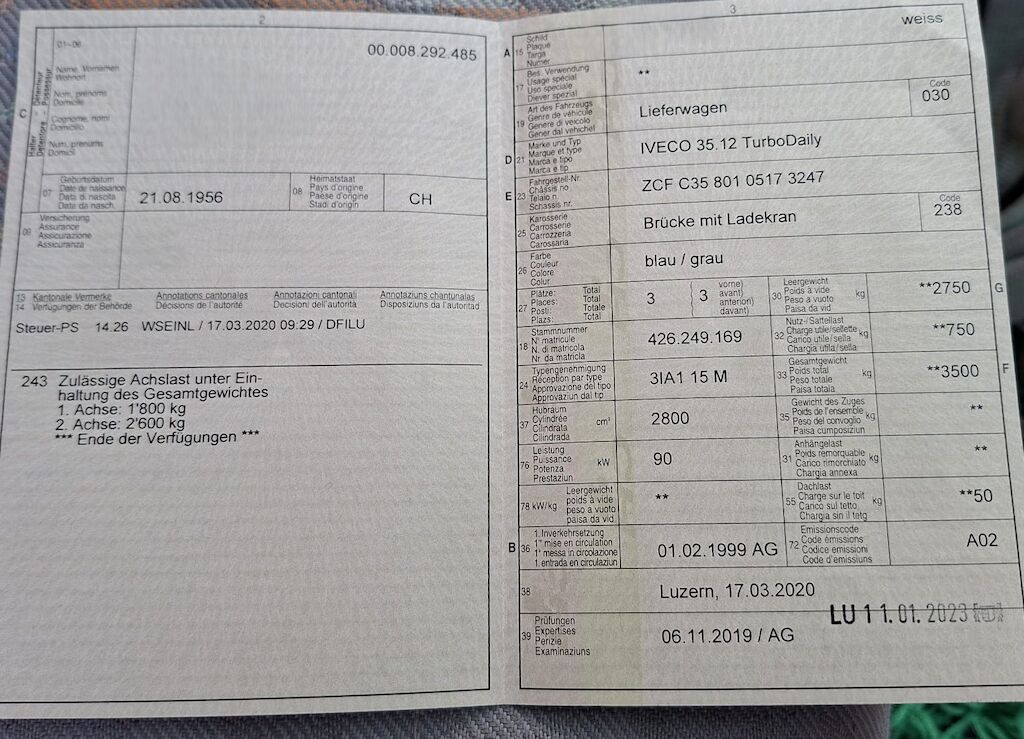 2
01-06
00.008.292.485
C
Halter Détenteur
Detentore Possessur
Name, Vornamen
Wohnort
Nom, prénoms
Domicile
Cognome, nomi
Domicilio
Num, prenums
Domicil
07
Geburtsdatum
Date de naissance
Data di nascita
Data da nasch.
21.08.1956
08
Heimatstaat
Pays d'origine
Paese d'origine
Stadi d'origin
CH
09
Versicherung
Assurance
Assicurazione
Assicuranza
13 Kantonale Vermerke
14 Verfügungen der Behörde
Annotations cantonales
Décisions de l'autorité
Annotazioni cantonali
Decisioni dell'autorità
Annotaziuns chantunalas
Disposiziuns da l'autoritad
Steuer-PS 14.26 WSEINL / 17.03.2020 09:29 / DFILU
243 Zulässige Achslast unter Ein-
haltung des Gesamtgewichtes
1. Achse: 1'800 kg
2. Achse: 2'600 kg
*** Ende der Verfügungen ***
3
A 15
Schild
Plaque
Targa
Numer
weiss
17
Bes. Verwendung
Usage spécial
Uso speciale
Diever spezial
**
19
Art des Fahrzeugs
Genre de véhicule
Genere di veicolo
Gener dal vehichel
Lieferwagen
Code
030
D 21
Marke und Typ
Marque et type
Marca e tipo
Marca e tip
IVECO 35.12 TurboDaily
E 23
Fahrgestell-Nr.
Châssis no
Telaio n.
Schassis nr.
ZCF C35 801 0517 3247
25
Karosserie
Carrosserie
Carrozzeria
Carossaria
Brücke mit Ladekran
Code
238
26
Farbe
Couleur
Colore
Colur
blau / grau
27
Plätze: Total
Places: Total
Posti: Totale
Plazs: Total
3
vorne)
avant)
anteriori)
davant)
3
30
Leergewicht
Poids à vide
Peso a vuoto
Paisa da vid
kg
**2750
G
18
Stammnummer
N° matricule
N. di matricola
Nr. da matricla
426.249.169
32
Nutz-/Sattellast
Charge utile/sellette
Carico utile/sella
Chargia utila/sella
kg
**750
24
Typengenehmigung
Réception par type
Approvazione del tipo
Approvaziun dal tip
3IA1 15 M
33
Gesamtgewicht
Poids total
Peso totale
Paisa totala
kg
**3500
F
37
Hubraum
Cylindrée
Cilindrata
Cilindrada
cm³
2800
35
Gewicht des Zuges
Poids de l'ensemble
Peso del convoglio
Paisa cumposiziun
kg
**
76
Leistung
Puissance
Potenza
Prestaziun
kW
90
31
Anhängelast
Poids remorquable
Carico rimorchiato
Chargia annexa
kg
**
78 kW/kg
Leergewicht
poids à vide
peso a vuoto
paisa da vid
**
55
Dachlast
Charge sur le toit
Carico sul tetto
Chargia sin il tetg
kg
**50
B 36
1. Inverkehrsetzung
1re mise en circulation
1a messa in circolazione
1. entrada en circulaziun
01.02.1999 AG
72
Emissionscode
Code émissions
Codice emissioni
Code d'emissiuns
A02
38
Luzern, 17.03.2020
LU 11.01.2023
39
Prüfungen
Expertises
Perizie
Examinaziuns
06.11.2019 / AG